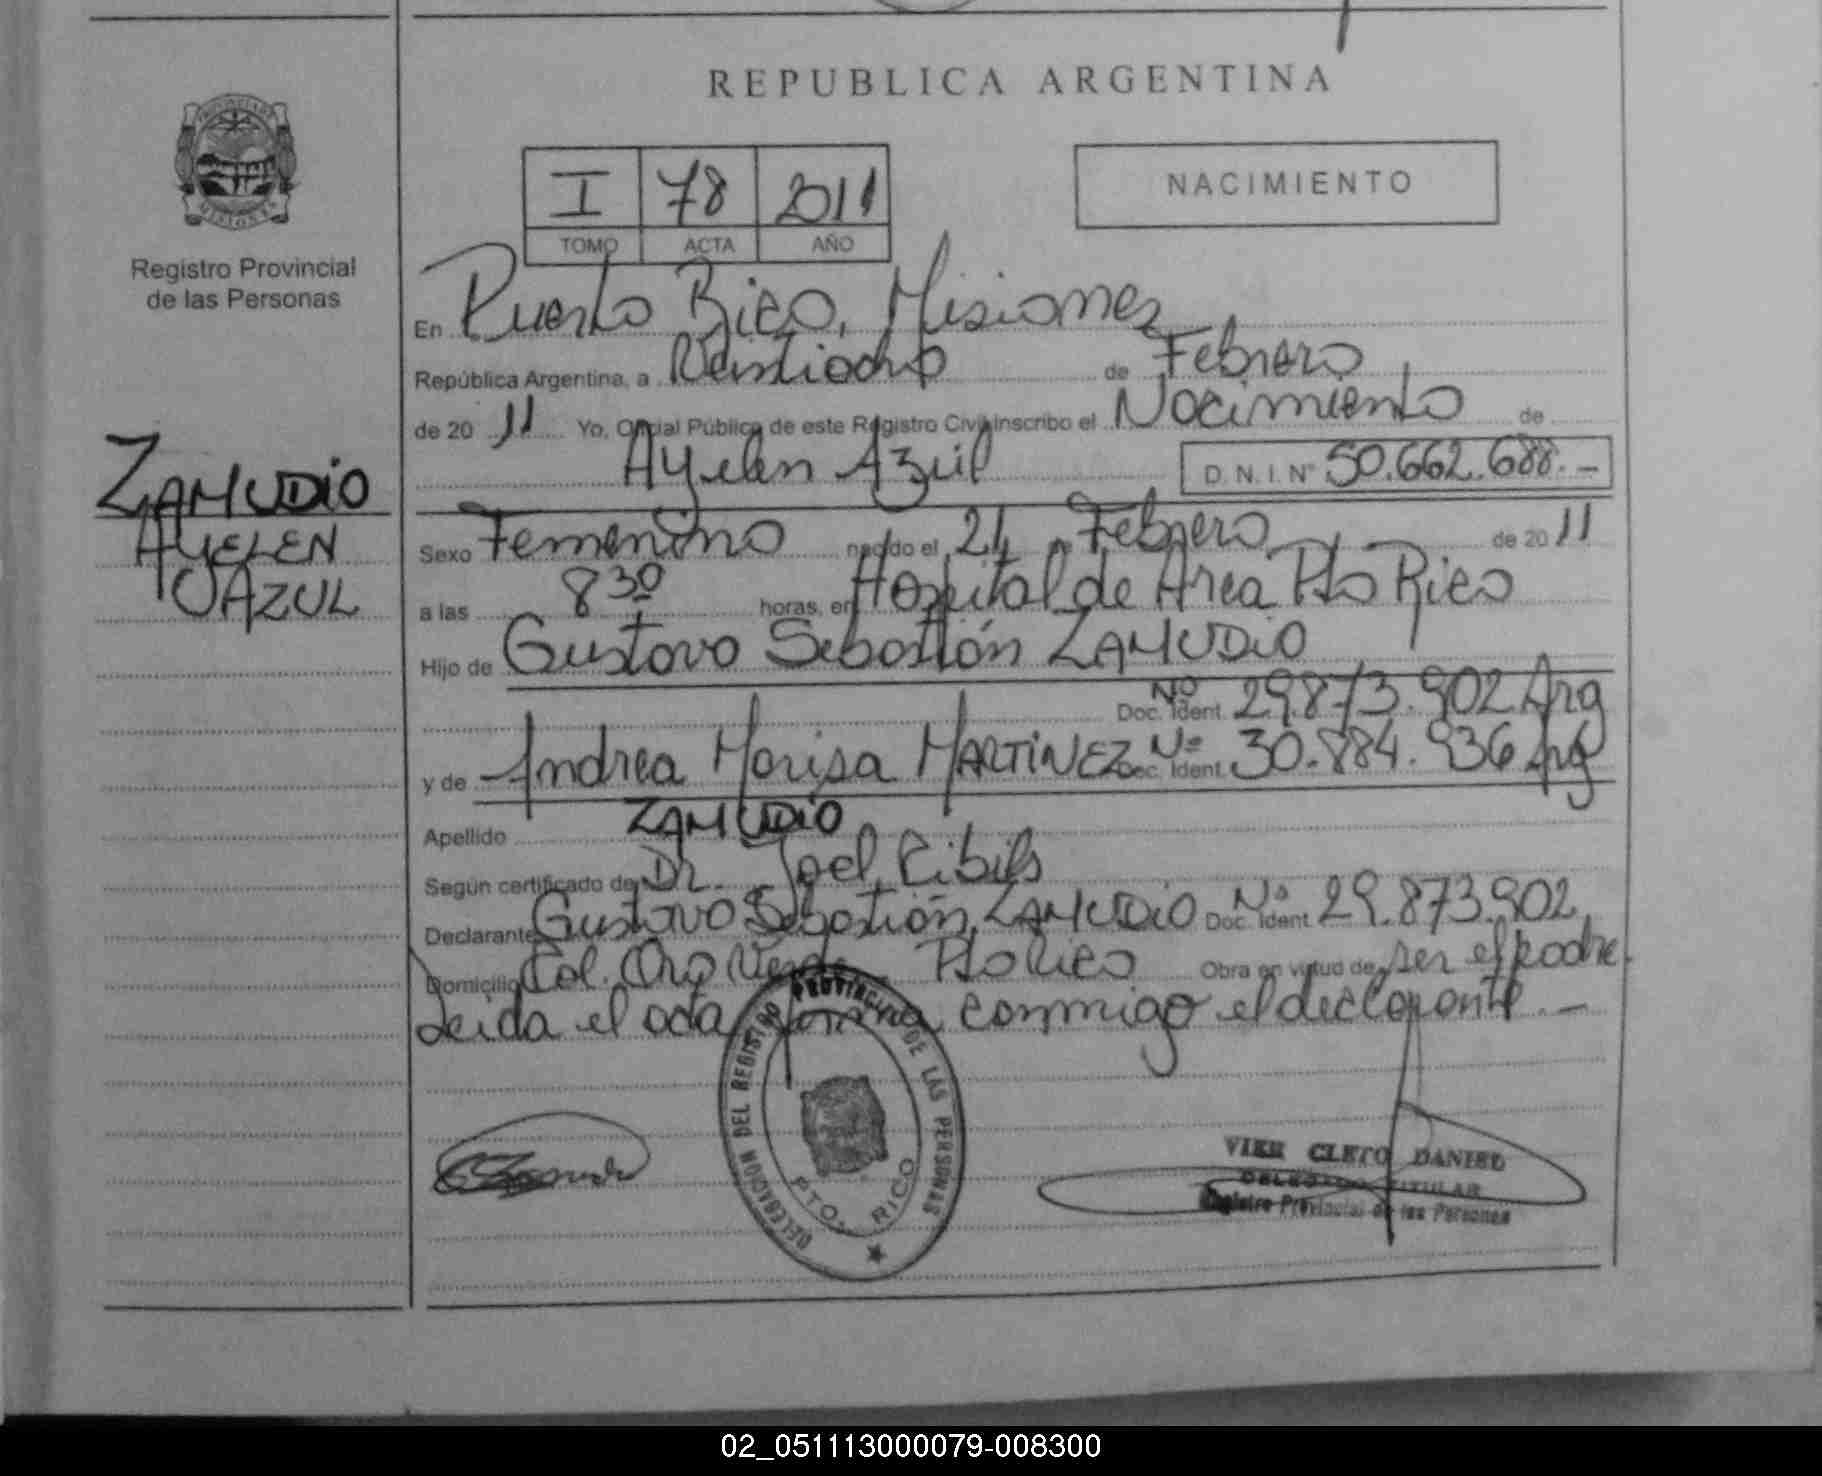 REPUBLICA ARGENTINA
I 78 2011
TOMO ACTA AÑO
NACIMIENTO
Registro Provincial
de las Personas
ZAMUDIO
AYELEN
AZUL
En Puerto Rico, Misiones
República Argentina, a Veintiocho de Febrero
de 20 11 Yo, Oficial Público de este Registro Civil inscribo el Nacimiento de
Ayelen Azul D.N.I. Nº 50.662.688.-
Sexo Femenino nacido el 24 de Febrero de 20 11
a las 8 30 horas, en Hospital de Area Pto Rico
Hijo de Gustavo Sebastián ZAMUDIO
Doc. Ident. Nº 29.873.902 Arg
y de Andrea Marisa MARTINEZ Doc. Ident. Nº 30.884.936 Arg
Apellido ZAMUDIO
Según certificado de Dr. Joel Cibils
Declarante Gustavo Sebastián ZAMUDIO Doc. Ident. Nº 29.873.902
Domicilio Col. Oro Verde Pto Rico Obra en virtud de ser el padre.
Leida el acta firma conmigo el declarante.-
DELEGACION DEL REGISTRO PROVINCIAL DE LAS PERSONAS
PTO. RICO
CLETO DANIEL
DELEGADO TITULAR
Registro Provincial de las Personas
02_051113000079-008300